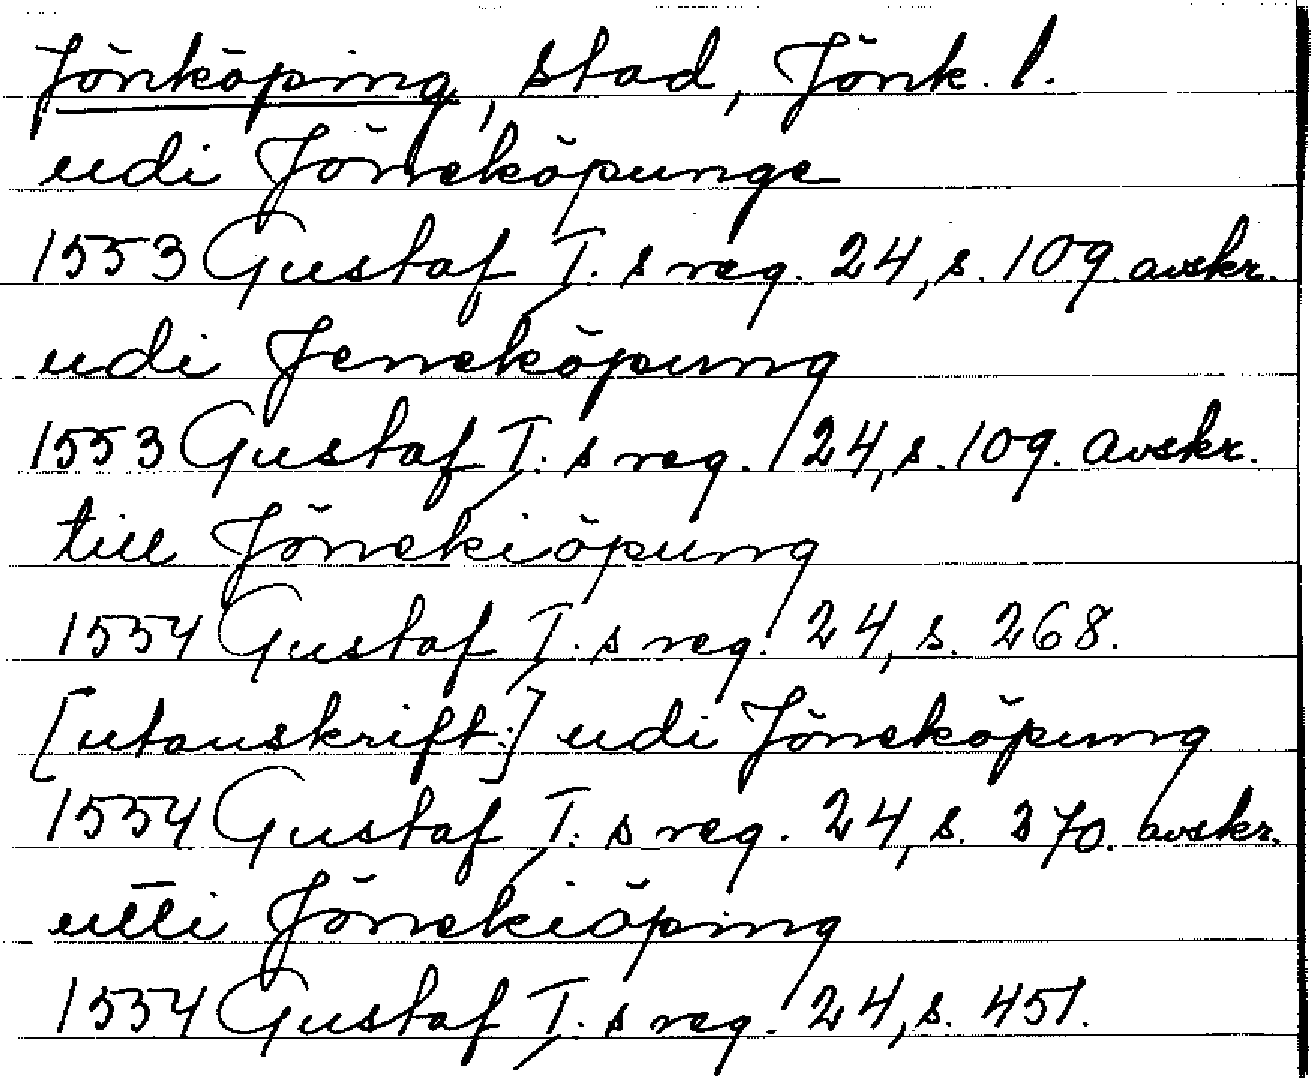 Jönköping, stad, Jönk. l.
udi Jöneköpunge
1553 Gustaf I:s reg. 24, s. 109 avskr.
udi Jeneköpung
1553 Gustaf I:s reg. 24, s. 109. avskr.
till Jönekiöpung
1554 Gustaf I:s reg. 24, s. 268.
[utanskrift:] udi Jöneköpung
1554 Gustaf I:s reg. 24, s. 370. avskr.
utti Jönekiöping
1554 Gustaf I:s reg. 24, s. 451.